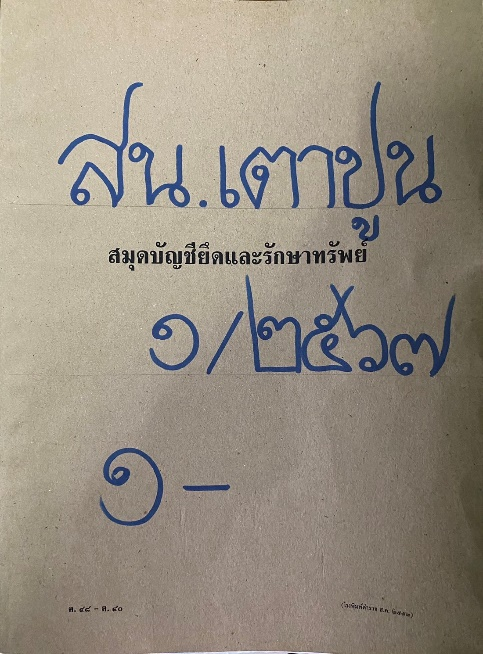 สน.เตาปูน
สมุดบัญชียึดและรักษาทรัพย์
๑/๒๕๖๗
๑ -
ต. ๔๘ - ต. ๔๐
(โรงพิมพ์ตำรวจ